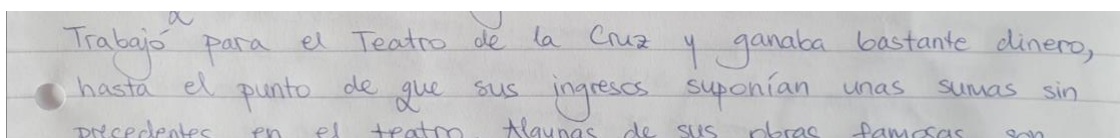 Trabajó para el Teatro de la Cruz y ganaba bastante dinero,
hasta el punto de que sus ingresos suponían unas sumas sin
precedentes en el teatro. Algunas de sus obras famosas son